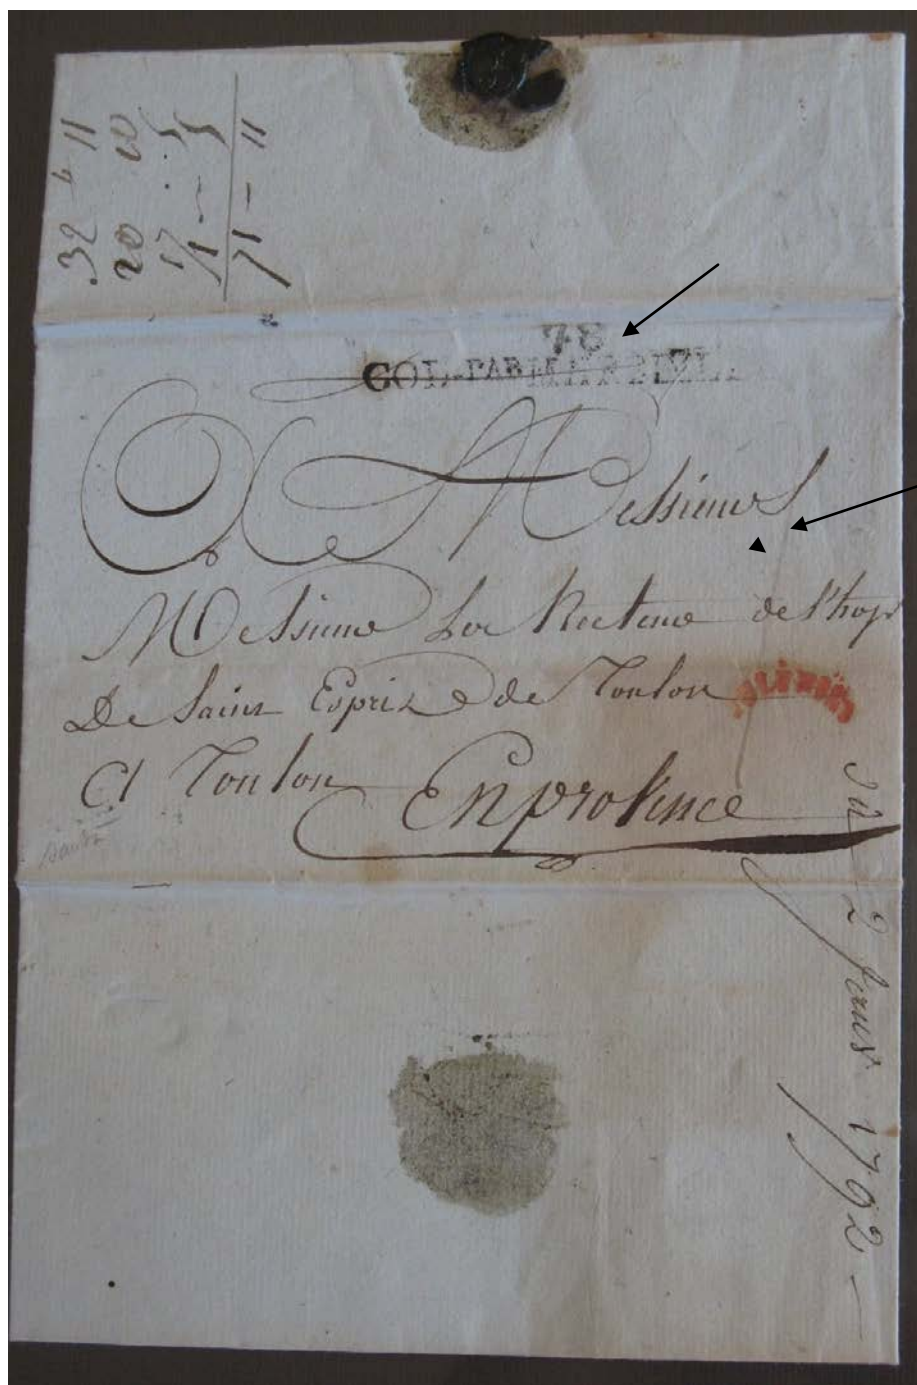 32 ₶ 11
20 00
71 - 11
78
COL-PAR
Messieurs
Messieurs Les Recteurs de l'hopi
De Saint Esprit de Toulon
A Toulon En provence
du 2 janvr 1792